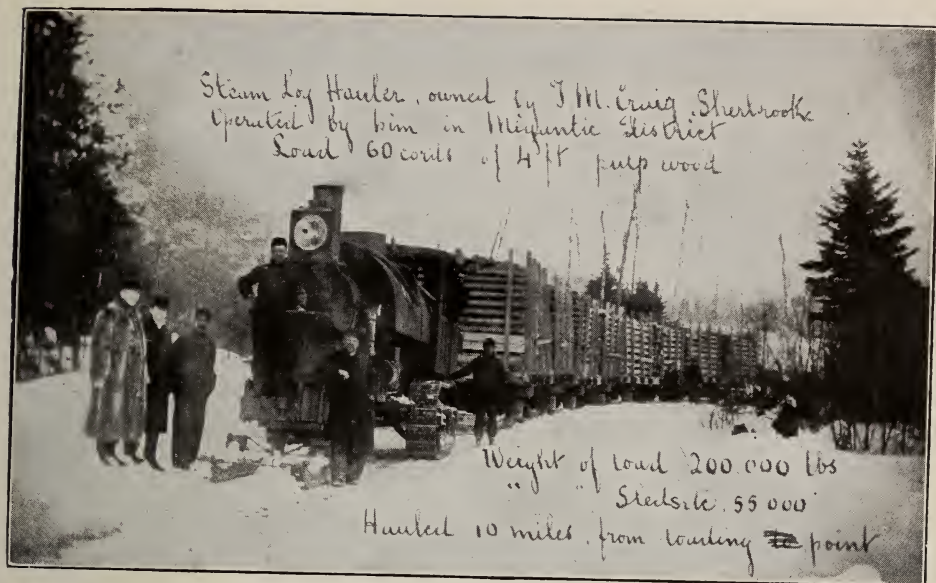 Steam Log Hauler, owned by T M. Craig, Sherbrook
Operated by him in Migantic District
Load 60 cords of 4 ft pulp wood
Weight of load 200.000 lbs
" " Sleds etc. 55 000
Hauled 10 miles, from loading point